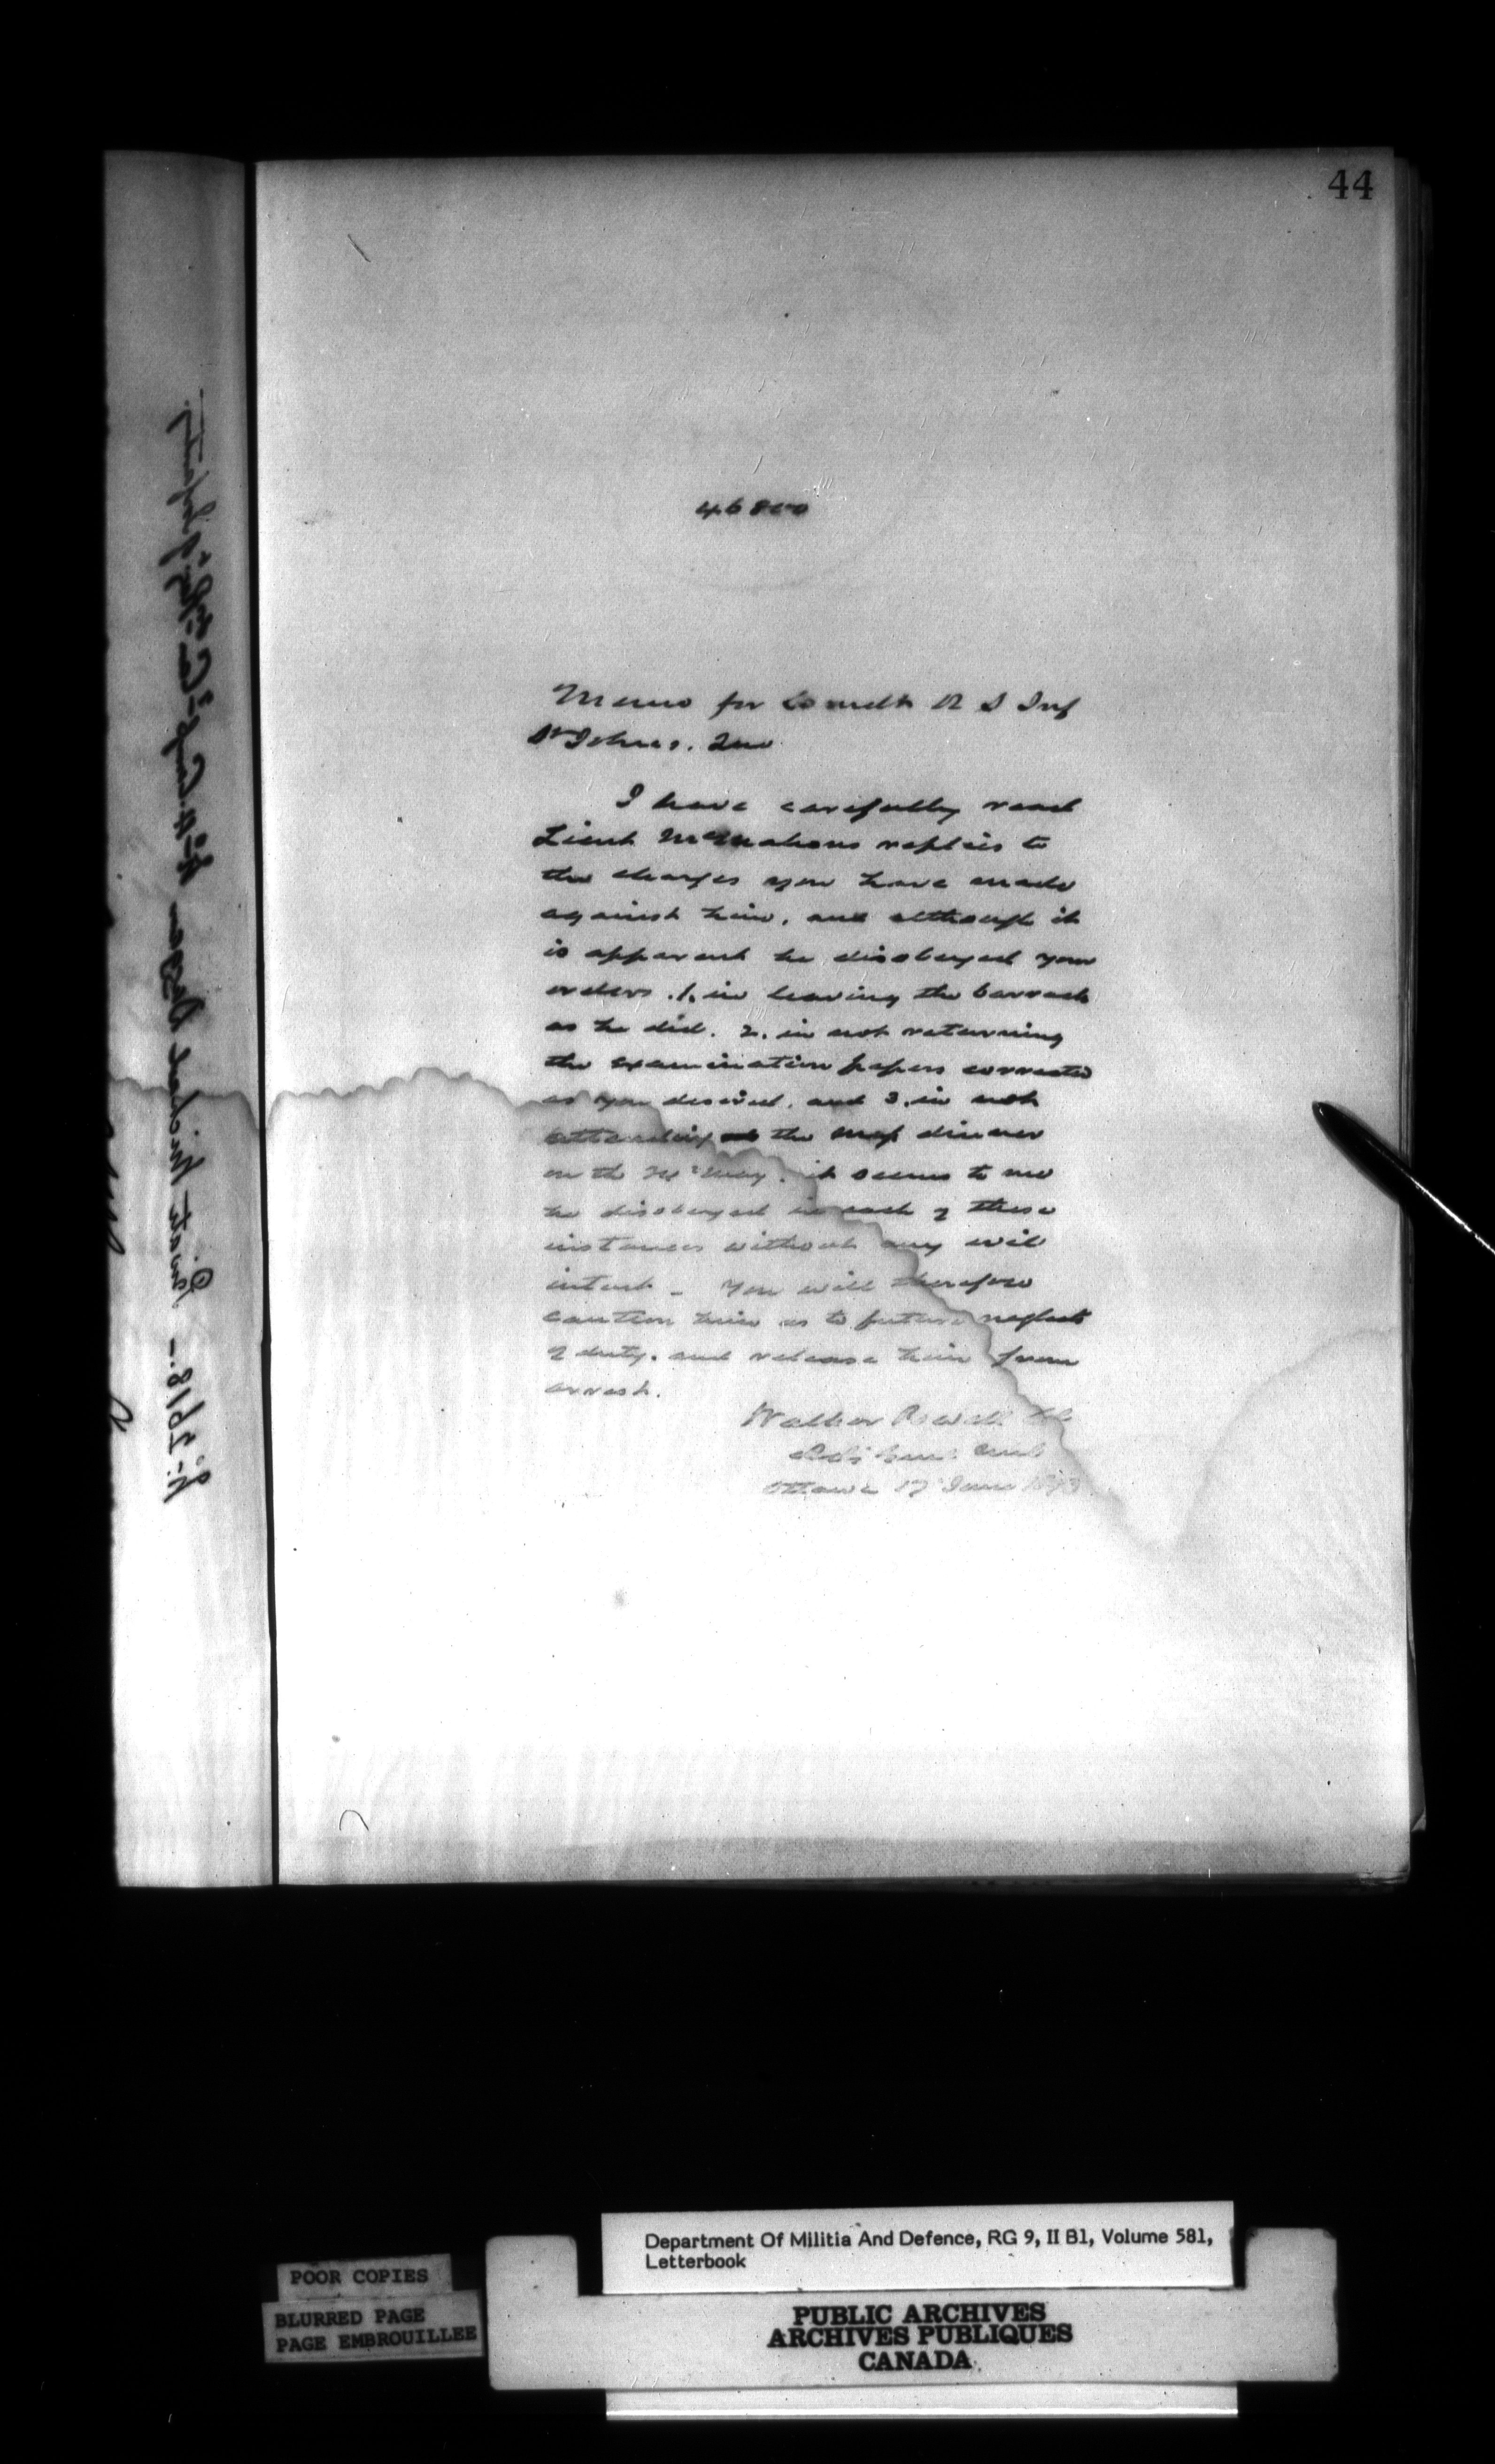 44
Memo for Comdt R S Inf
St Johns. Que
I have carefully read
Lieut McMahons replies to
the charges you have made
against him, and although it
is apparent he disobeyed your
orders .1. in leaving the barrack
as he did. 2. in not returning
the examination papers corrected
as you desired, and 3. in not
attending at the mess dinner
on the May. it seems to me
he disobeyed in each of these
instances without any evil
intent - You will therefore
caution him as to future neglect
of duty. and release him from
arrest.
Walker Powell Col
Adj Genl
Ottawa 17 June
Private Michael
Department Of Militia And Defence, RG 9, II B1, Volume 581,
Letterbook
POOR COPIES
BLURRED PAGE
PAGE EMBROUILLEE
PUBLIC ARCHIVES
ARCHIVES PUBLIQUES
CANADA